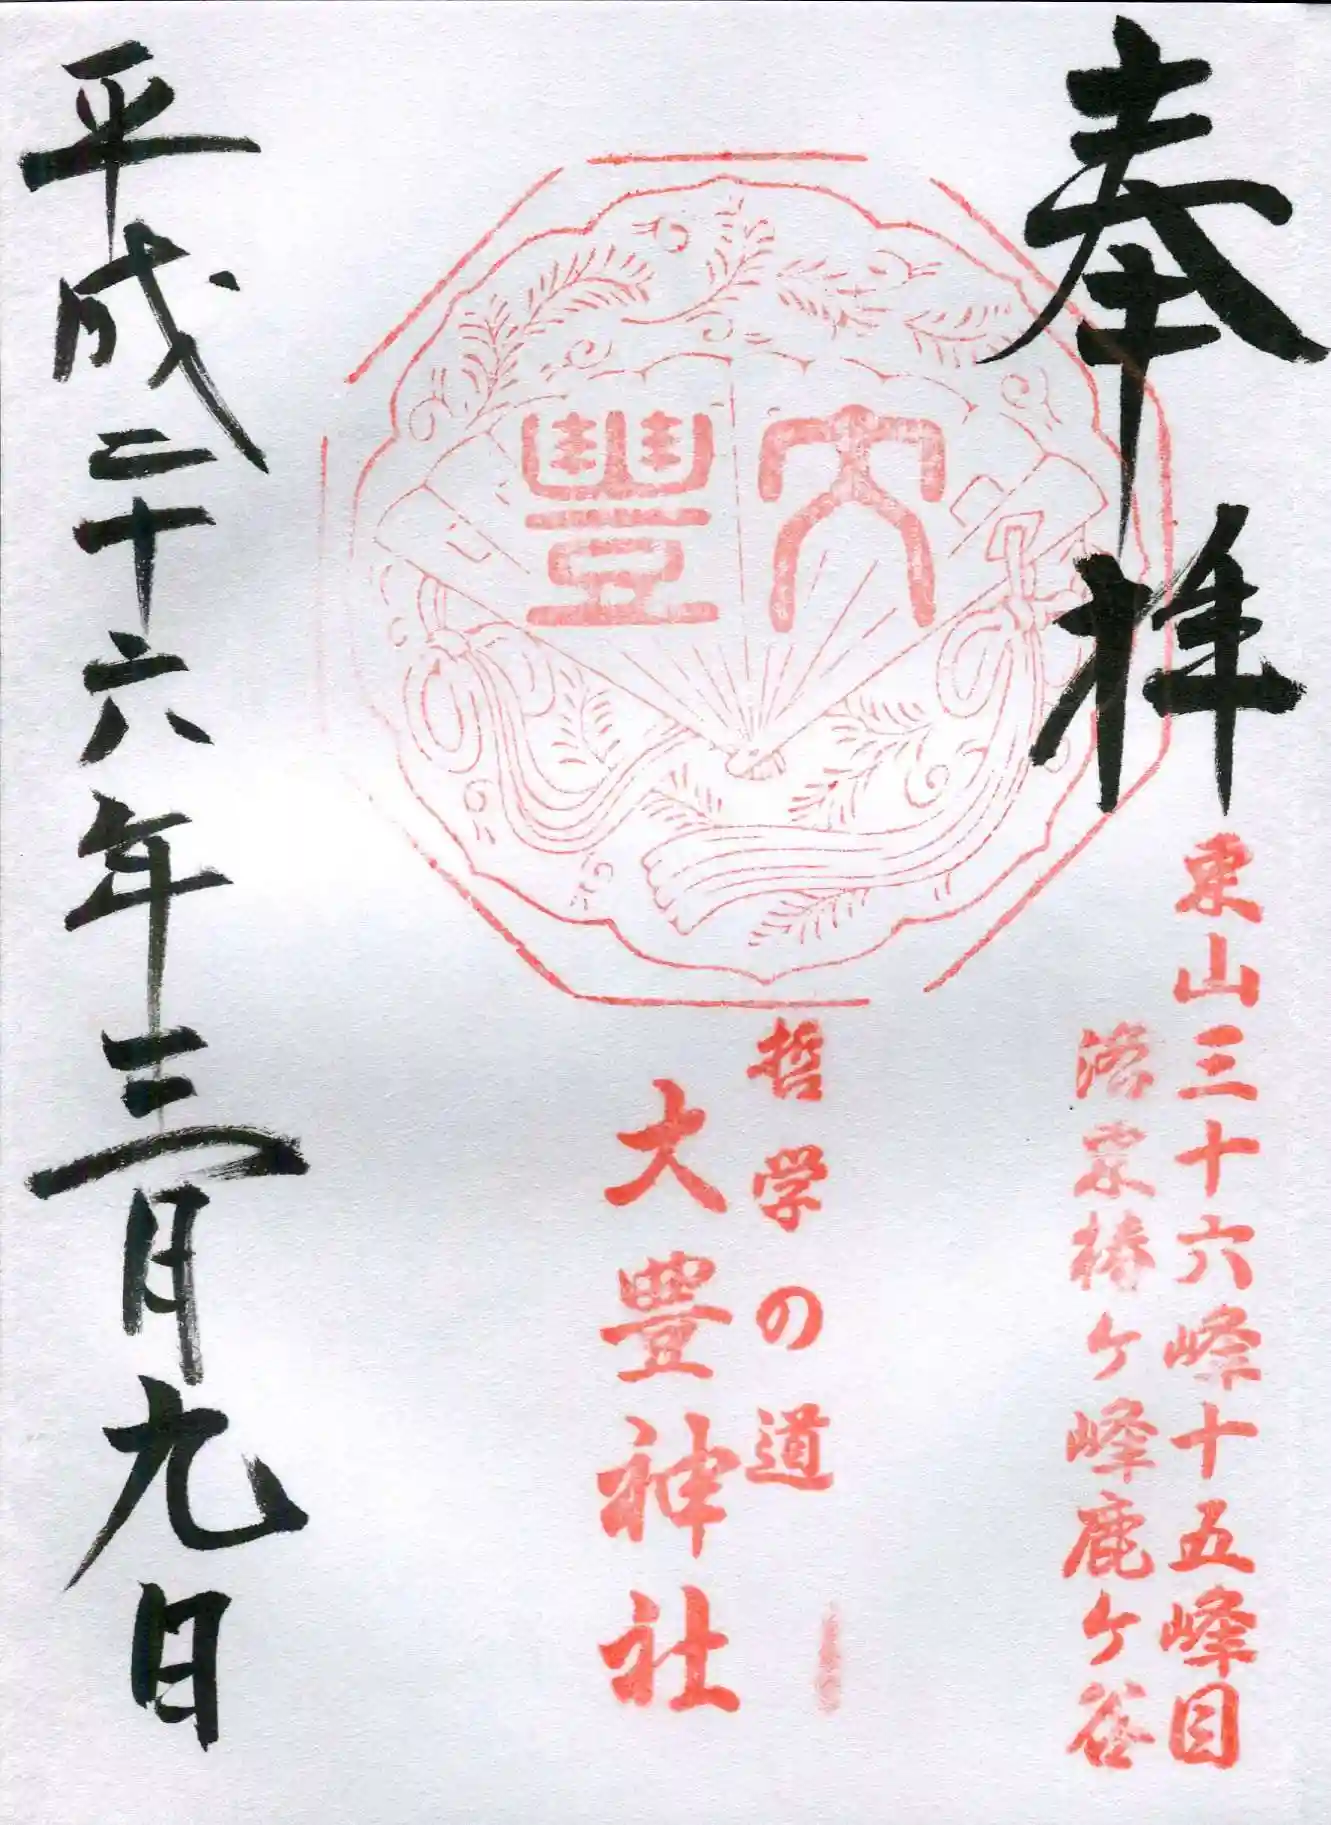 奉拝
東山三十六峰十五峰目
洛東椿ケ峰鹿ケ谷
大豐
哲学の道
大豊神社
平成二十六年三月九日